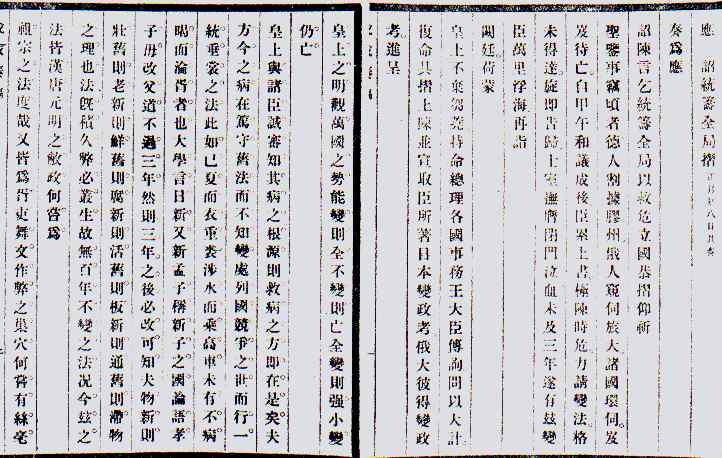 應 詔統籌全局摺 正月初八日具奏
奏爲應
詔陳言乞統籌全局以救危立國恭摺仰祈
聖鑒事竊頃者德人割據膠州俄人窺伺旅大諸國環伺岌
岌待亡自甲午和議成後臣累上書極陳時危力請變法格
未得達旋卽告歸土室撫膺閉門泣血未及三年遂有茲變
臣萬里浮海再詣
闕廷荷蒙
皇上不棄芻蕘特命總理各國事務王大臣傳詢問以大計
復命具摺上陳並宣取臣所著日本變政考俄大彼得變政
考進呈
皇上之明觀萬國之勢能變則全不變則亡全變則强小變
仍亡
皇上與諸臣誠審知其病之根源則救病之方卽在是矣夫
方今之病在篤守舊法而不知變處列國競爭之世而行一
統垂裳之法此如已夏而衣重裘涉水而乘高車未有不病
暍而淪胥者也大學言日新又新孟子稱新子之國論語孝
子毋改父道不過三年然則三年之後必改可知夫物新則
壯舊則老新則鮮舊則腐新則活舊則板新則通舊則滯物
之理也法旣積久弊必叢生故無百年不變之法況今茲之
法皆漢唐元明之敝政何嘗爲
祖宗之法度哉又皆爲胥吏舞文作弊之巢穴何嘗有絲毫